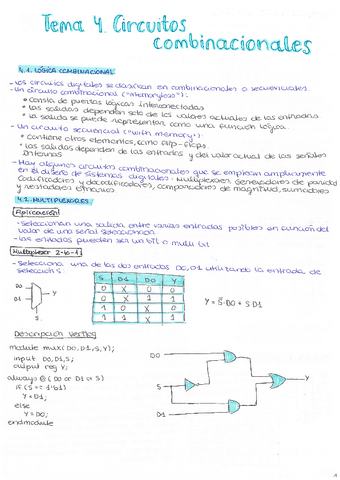 Tema 4. Circuitos
combinacionales
4.1. LÓGICA COMBINACIONAL
- Los circuitos digitales se clasifican en combinacionales o secuenciales.
- Un circuito combinacional ("memoryless"):
• Consta de puertas lógicas interconectadas
• Las salidas dependen solo de los valores actuales de las entradas
• La salida se puede representar como una función lógica.
- Un circuito secuencial ("with memory"):
• Contiene otros elementos, como flip-flops.
• Las salidas dependen de las entradas y del valor actual de las señales
internas
- Hay algunos circuitos combinacionales que se emplean ampliamente
en el diseño de sistemas digitales: Multiplexores, generadores de paridad
codificadores y decodificadores, comparadores de magnitud, sumadores
y restadores binarios
4.2. MULTIPLEXORES
Aplicación
- Seleccionan una salida entre varias entradas posibles en función del
valor de una señal seleccionada.
- Las entradas pueden ser un bit o multi bit
Multiplexor 2-to-1
- Selecciona una de las dos entradas D0, D1 utilizando la entrada de
selección S
S D1 D0 Y
0 X 0 0
0 X 1 1
1 0 X 0
1 1 X 1
D0
D1
Y
S
Y = S̅·D0 + S·D1
Descripción Verilog
module mux(D0,D1,S,Y);
input D0,D1,S;
output reg Y;
always @ (D0 or D1 or S)
if (S == 1'b1)
Y=D1;
else
Y=D0;
endmodule
D0
S
D1
Y